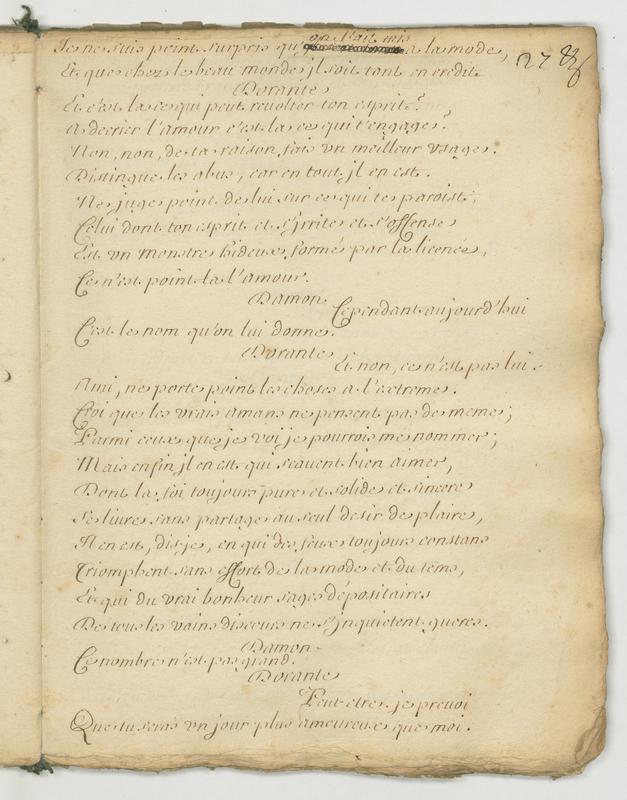 on l'ait mis
Je ne suis point surpris qu' a la mode,
27
Et que chez le beau monde jl soit tant en credit
Dorante
Et c'est la ce qui peut revolter ton esprit?
A decrier l'amour c'est la ce qui t'engage?
Non, non, de ta raison fais vn meilleur vsage.
Distingue les abus, car en tout jl en est.
Ne juge point de lui sur ce qui te paroist,
Celui dont ton esprit et s'jrrite et s'offense
Est vn monstre hideux, formé par la licence,
Ce n'est point la l'amour.
Damon
Cependant aujourd'hui
C'est le nom qu'on lui donne.
Dorante
Et non, ce n'est pas lui.
Ami, ne porte point les choses a l'extreme.
Croi que les vrais amans ne pensent pas de meme;
Parmi ceux que je voi je pourrois me nommer;
Mais enfin jl en est qui scavent bien aimer,
Dont la foi toujours pure et solide et sincere
Se livre sans partage au seul desir de plaire,
Jl en est, dis je, en qui des feux toujours constans
Triomphent sans effort de la mode et du tems,
Et qui du vrai bonheur sages dépositaires
De tous les vains discours ne s'jnquietent gueres.
Damon
Ce nombre n'est pas grand.
Dorante
Peut-etre, je prevoi
Que tu seras vn jour plus amoureux que moi.